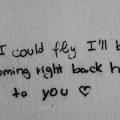 I could fly I'll b
oming right back h
to you ♡